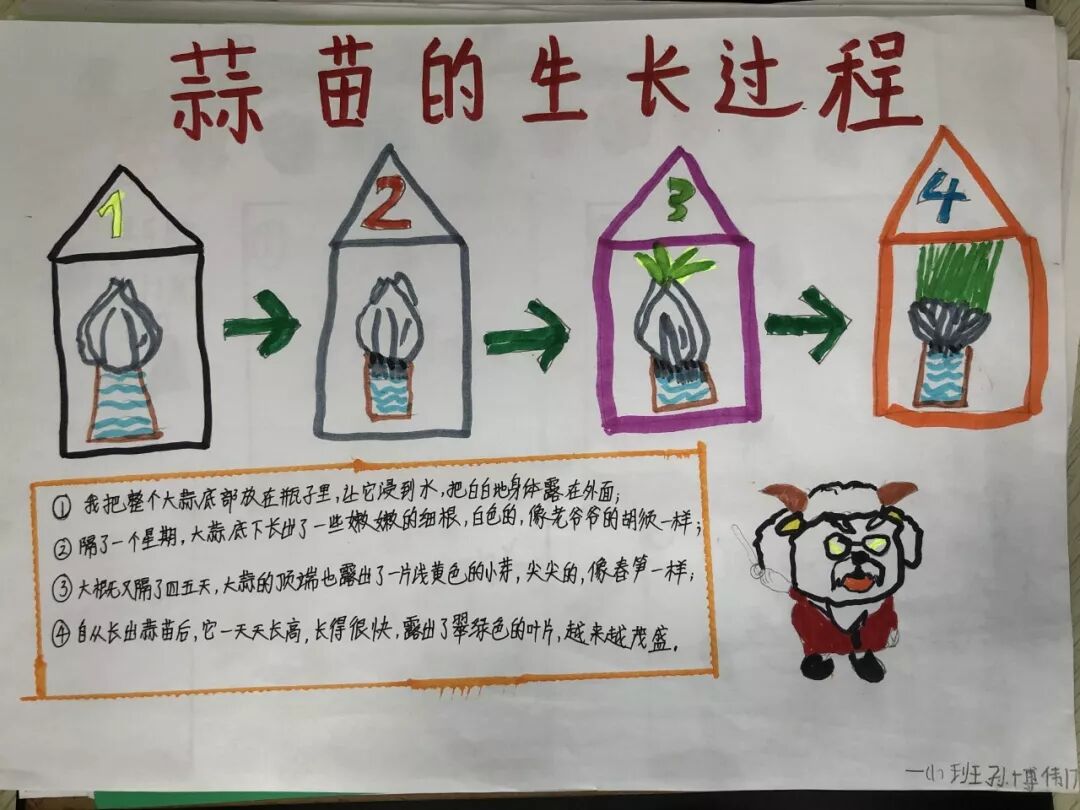 蒜苗的生长过程
1
2
3
4
① 我把整个大蒜底部放在瓶子里,让它浸到水,把白白地身体露在外面;
② 隔了一个星期,大蒜底下长出了一些嫩嫩的细根,白色的,像老爷爷的胡须一样;
③ 大概又隔了四五天,大蒜的顶端也露出了一片浅黄色的小芽,尖尖的,像春笋一样;
④ 自从长出蒜苗后,它一天天长高,长得很快,露出了翠绿色的叶片,越来越茂盛。
一(1)班孙博伟